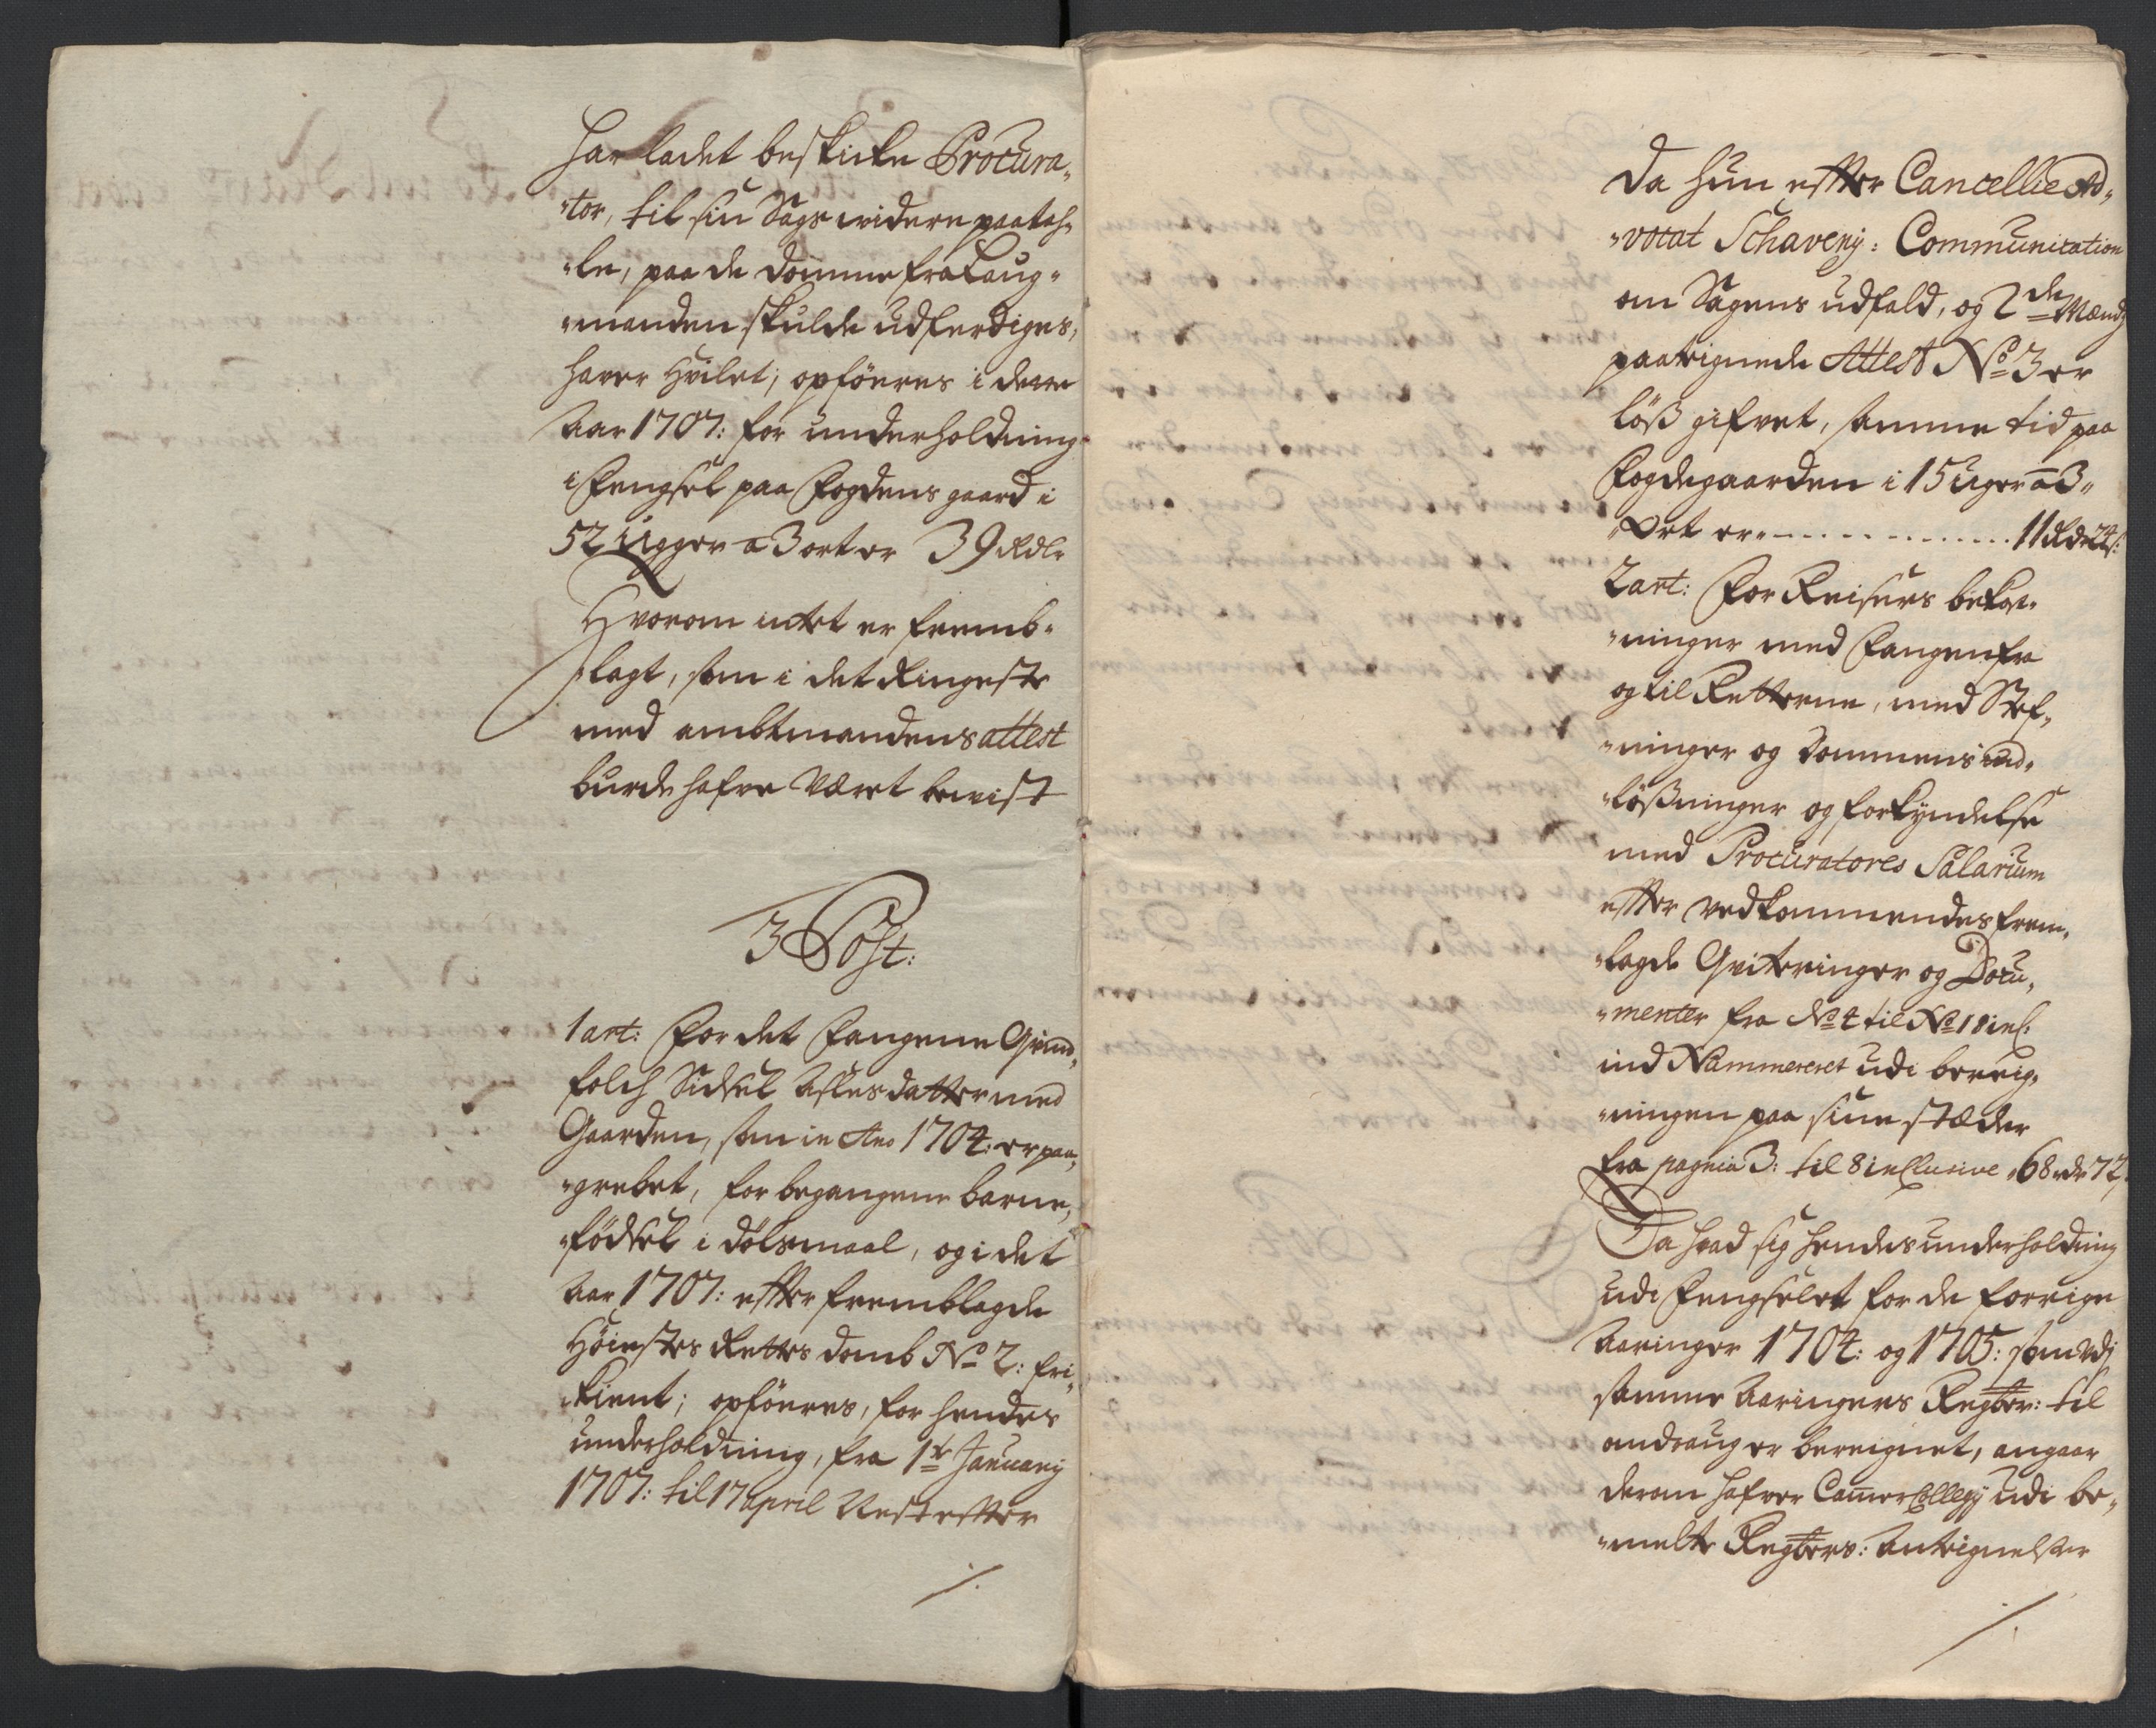 har ladet beskicke Procura„
„tor, til sin Sags widere paatah„
„le, paa de domme fra Laug„
„manden skulde udferdiges,
harer hvilet; opföeres i dette
Aar 1707: for underholdning
i Fengsel paa Fogdens gaard i
52 Ugger a 3 ort er 39 Rdlr
Hvorom intet er fremb„
lagt, som i det Ringeste
med ambtmandens attest
burde hafve Været bewist
3 Post:
1 art: For det Fangene Qvind„
folch Sidsel Aslesdatter med
Gaarden, som in Ano 1704: er paa„
„grebet, for begangene barne„
„födsel i dölsmaal, og i det
Aar 1707: effter fremblagde
Höiestes Rettes domb No 2: fri„
kient; opföeres, for hendes
underholdning, fra 1te January
1707: til 17 april Nest effter
/.
Da hun effter Cancellie Ad„
„vocat Schaveny: Communication
om Sagens udfald, og 2de Mænds
paateignede Attest No 3 er
löß gifvet, samme tid paa
Fogdegaarden i 15 Uger a 3„
„Ort er„ - - - - - - - - 11 Rdr 24 s:
2 art: For Reisers bekost„
„ninger med Fangen fra
og til Retterne, med Stef„
„ninger og Dommens ind„
„lößninger og forkyndelse
med Procuratores Salarium
effter vedkommendes frem„
„lagde Qviteringer og Docu„
„menter fra No 4 til No 18 incl:
ind Nammereret udi bereig„
„ningen paa sine stæder
fra pagina 3: til 8 inclusive „68 rdr 72
Da hvad sig hendes underholding
udi Fengselet for de forrige
Aaringer 1704: og 1705: som udj
samme Aaringers Regster: til
andraug er bereignet, angaar
derom hafver Camer Collegij udi be„
„melte Regsters: Anteignelser
/.